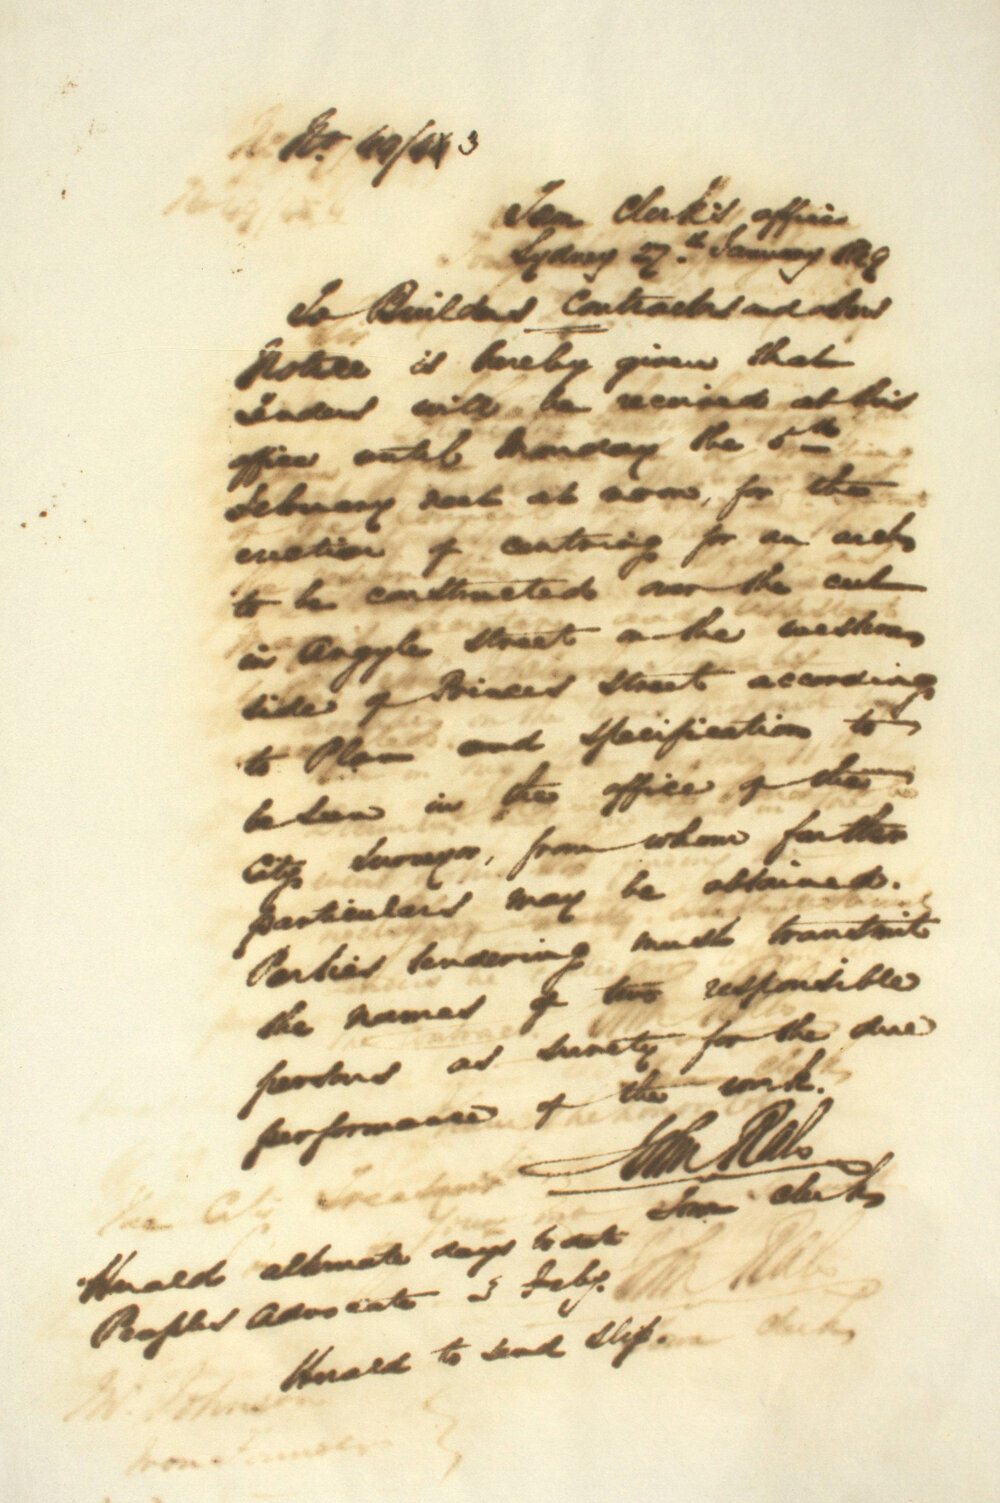 No. 49/43
Town Clerk's office
Sydney 27th January 1849
To Builders Contractors and others
Notice is hereby given that
Tenders will be received at this
office until Monday the 5th
February next at noon, for the
erection of centring for an arch
to be constructed over the cut
in Argyle street on the western
side of Princes street according
to Plan and specification to
be seen in the office of the
City Surveyor, from whom further
particulars may be obtained.
Parties tendering must transmit
the names of two responsible
persons as surety for the due
performance of the work.
John Rae
Town clerk
Herald alternate days to date
Peoples Advocate 3 Feby.
Herald to send slip.